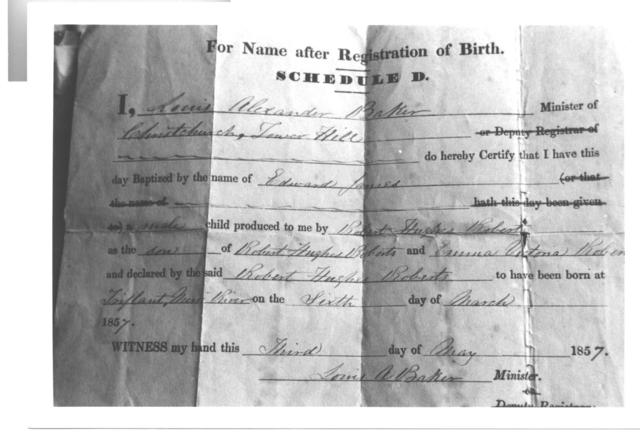 For Name after Registration of Birth.
SCHEDULE D.
I, Louis Alexander Baker Minister of
Christchurch, Tower Hill or Deputy Registrar of
do hereby Certify that I have this
day Baptized by the name of Edward James (or that
the name of hath this day been given
to) a male child produced to me by Robert Hughes Robert
as the son of Robert Hughes Roberts and Emma
and declared by the said Robert Hughes Roberts to have been born at
River on the Sixth day of March
1857.
WITNESS my hand this Third day of May 1857.
Louis A Baker Minister.
or
Deputy Registrar